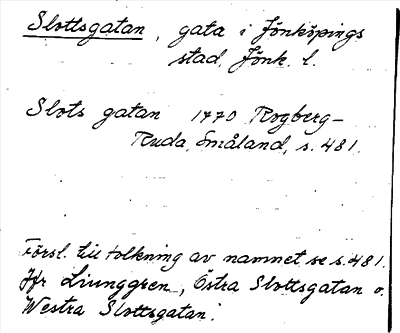 Slottsgatan, gata i Jönköpings
stad, Jönk. l.
Slots gatan 1770 Rogberg-
Ruda, Småland, s. 481.
Försl. till tolkning av namnet se s. 481.
Jfr Ljunggren, Östra Slottsgatan o.
Westra Slottsgatan.